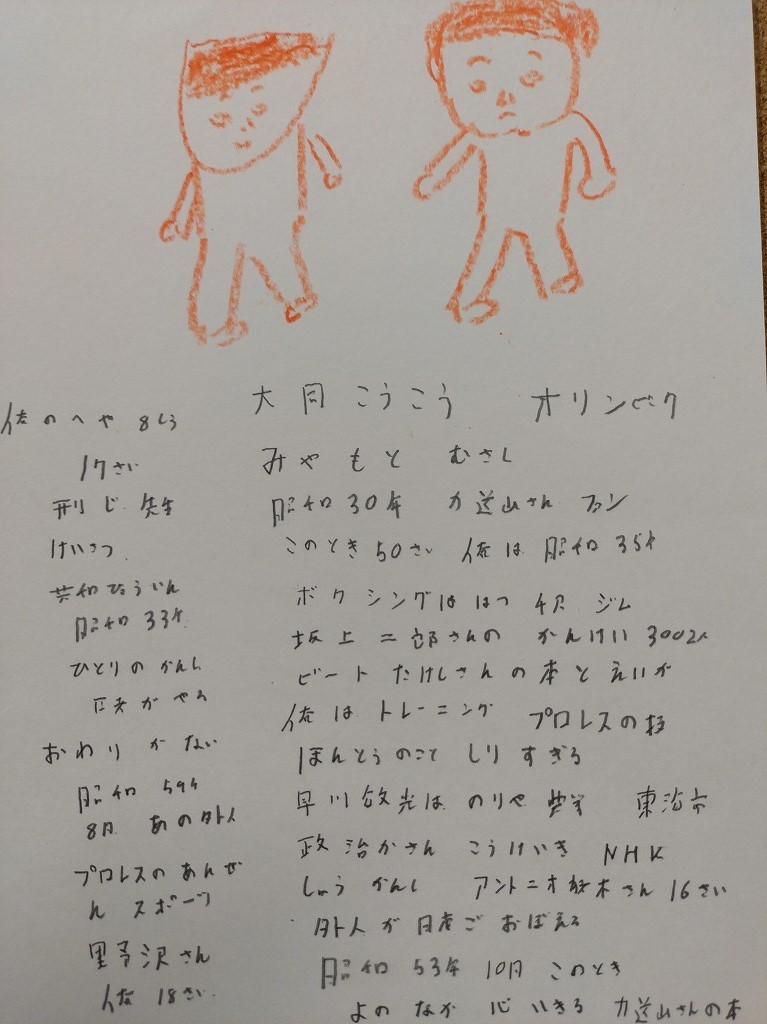 俺のへや 8じょう
17さい
刑じ 先生
けいさつ
共和びょういん
昭和 33年
ひとりの かんし
医者が やる
おわり が ない
昭和 59年
8月 あの外人
プロレスのあんぜ
ん スポーツ
野沢さん
俺 18さい
大同 こうこう オリンピック
みやもと むさし
昭和 30年 力道山さん ファン
このとき 50さい 俺は 昭和 35年
ボクシングは はっ ジム
坂上二郎さんの かんけい 300人
ビートたけしさんの本とえいが
俺はトレーニング プロレスの技
ほんとうのこと しりすぎる
早川 は のりや 東海市
政治かさん こうけいき NHK
しょう かんし アントニオ猪木さん 16さい
外人が日本ご おぼえる
昭和 53年 10月 このとき
よの なか 心 いきる 力道山さんの本